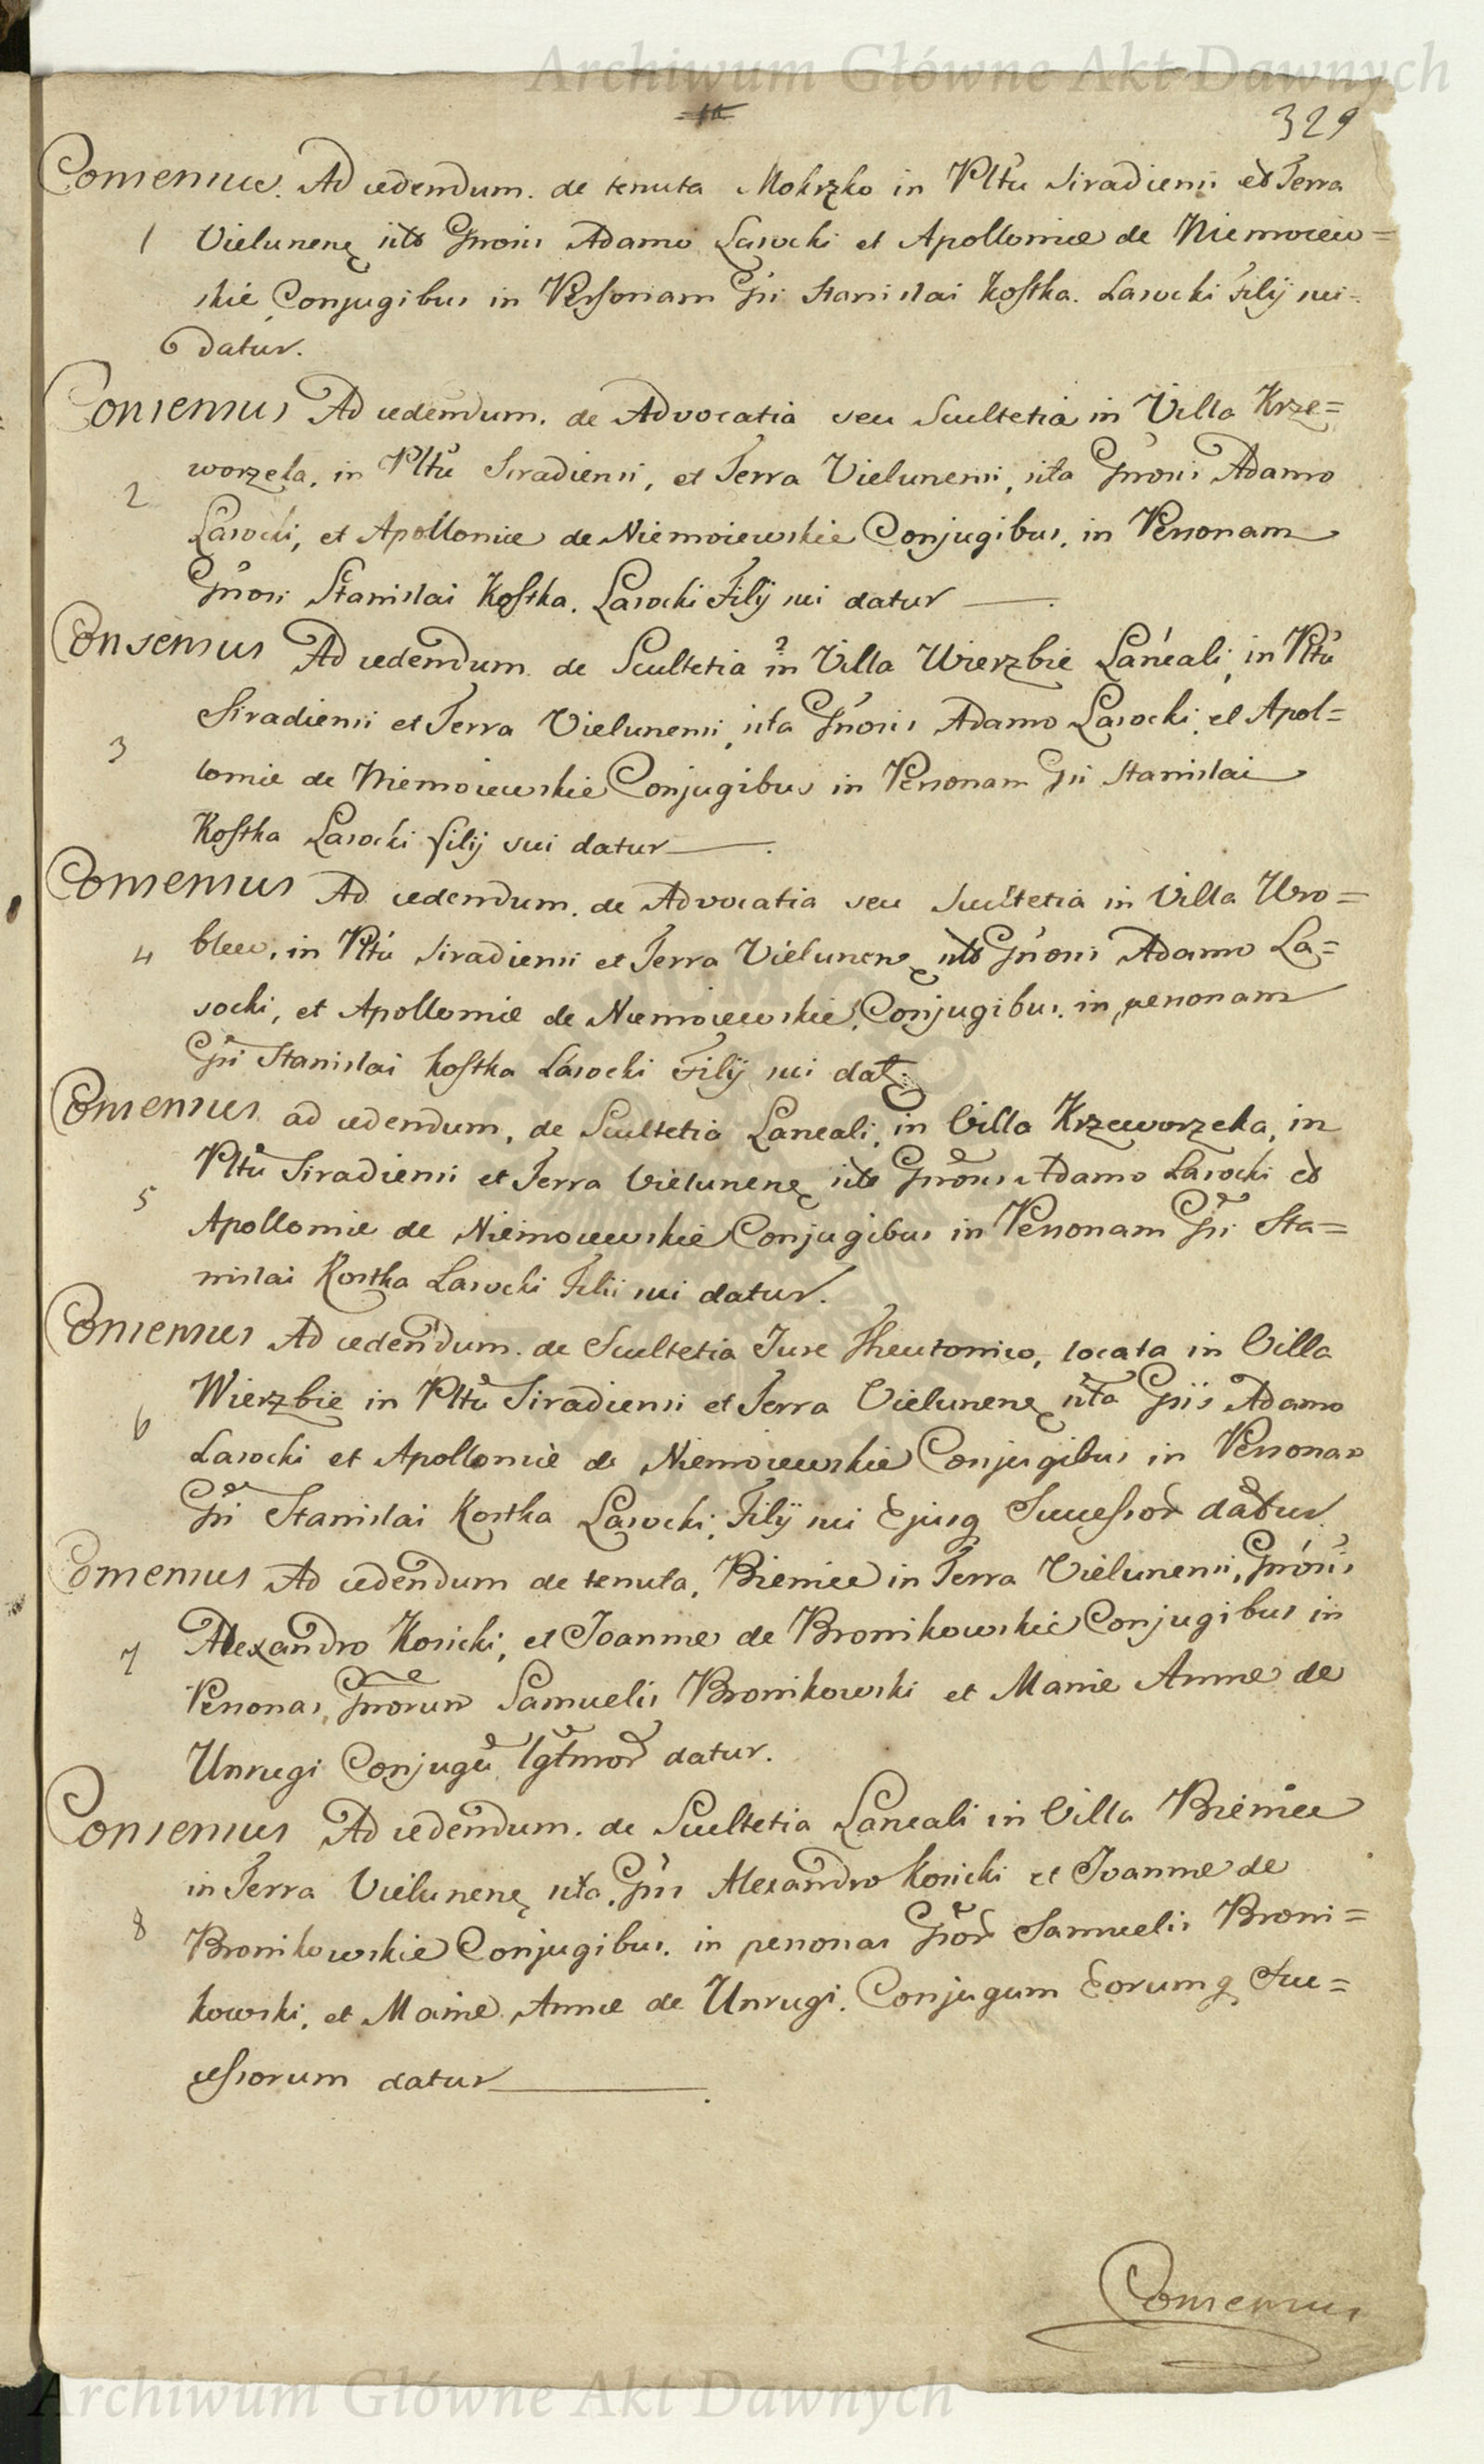 Archiwum Główne Akt Dawnych
329
Consensus Ad cedendum. de tenuta Mokrzko in Pltu Siradiensi et Terra
1 Vielunens sita Gnosis Adamo Lasocki et Apolloniae de Niemoiew=
skie Conjugibus in Personam Gsi Stanislai Kostka. Lasocki Filij sui=
datur.
Consensus Ad cedendum. de Advocatia seu Scultetia in Villa Krze=
worzeka, in Pltu Siradiensi, et Terra Vielunensi, sita Gnosis Adamo
2
Lasocki, et Apolloniae de Niemoiewskie Conjugibus, in Personam
Gnosi Stanislai Kostka. Lasocki Filij sui datur
Consensus Ad cedendum. de Scultetia in Villa Wierzbie Laneali, in Pltu
Siradiensi et Terra Vielunensi, sita Gnosis Adamo Lasocki, et Apol=
3
loniae de Niemoiewskie Conjugibus in Personam Gsi Stanislai
Kostka Lasocki filij sui datur
Consensus Ad cedendum. de Advocatia seu Scultetia in Villa Wro=
4 blew, in Pltu Siradiensi et Terra Vielunens sita Gnosis Adamo La=
socki, et Apolloniae de Niemoiewskie, Conjugibus. in personam
Gsi Stanislai Kostka Lasocki Filij sui dat.
Consensus ad cedendum, de Scultetia Laneali, in Villa Krzeworzeka, in
Pltu Siradiensi et Terra Vielunens sita Gnosis Adamo Lasocki et
5
Apolloniae de Niemoiewskie Conjugibus in Personam Gsi Sta=
nislai Kostka Lasocki Filii sui datur.
Consensus Ad cedendum. de Scultetia Jure Theutonico, locata in Villa
Wierzbie in Pltu Siradiensi et Terra Vielunens sita Gsis Adamo
6
Lasocki et Apolloniae de Niemoiewskie Conjugibus in Personas
Gsi Stanislai Kostka Lasocki, Filij sui Ejusq Successor datur
Consensus Ad cedendum de tenuta, Bieniec in Terra Vielunensi, Gnosis
7 Alexandro Kosicki, et Joannae de Bronikowskie Conjugibus in
Personas, Gnorum Samuelis Bronikowski et Mariae Annae de
Unrugi Conjugu lgtmor datur.
Consensus Ad cedendum. de Scultetia Laneali in Villa Bieniec
in Terra Vielunens sita, Gsis Alexandro Kosicki et Joannae de
8
Bronikowskie Conjugibus. in personas Gsor Samuelis Broni=
kowski, et Mariae Annae de Unrugi. Conjugum Eorumq Suc=
cessorum datur
Consensus
Archiwum Główne Akt Dawnych